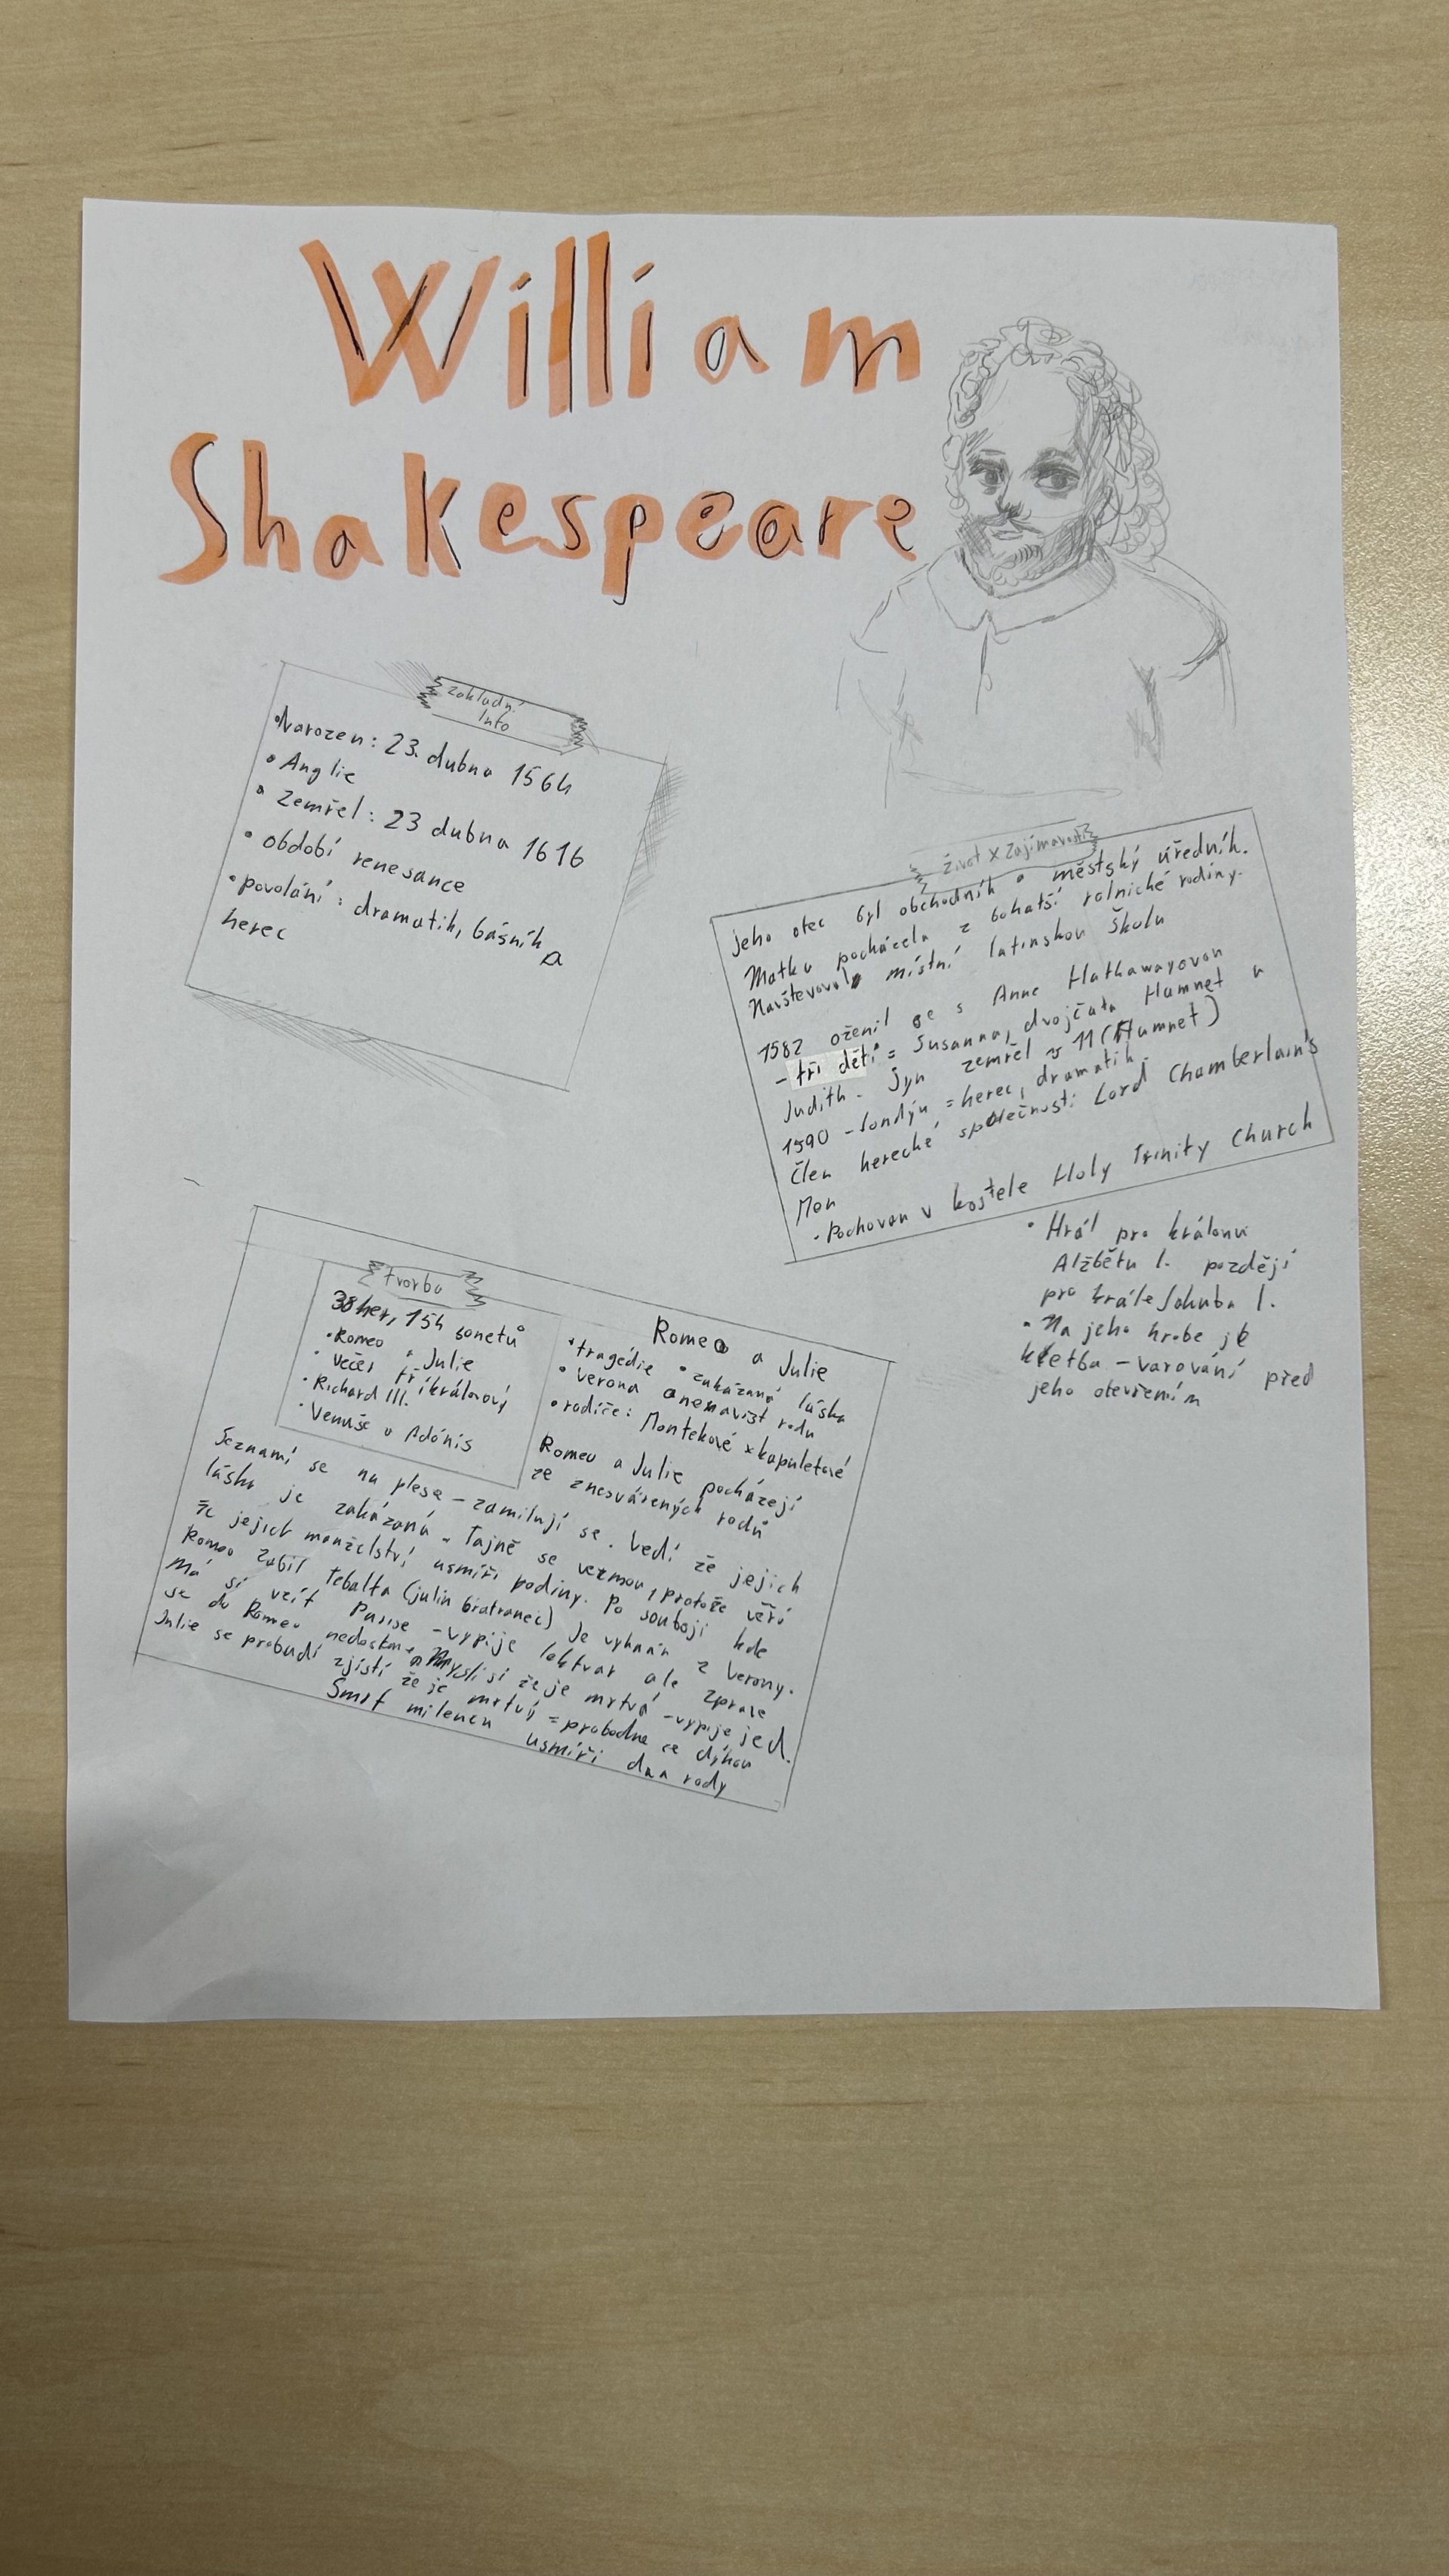 William
Shakespeare
základní
Info
•Narozen: 23. dubna 1564
• Anglie
• Zemřel: 23 dubna 1616
• období renesance
•povolání: dramatik, básník a
herec
život x zajímavosti
jeho otec byl obchodník a městský úředník.
Matka pocházela z bohatší rolnické rodiny.
Navštevoval místní latinskou školu
1582 oženil se s Anne Hathawayovou
- tři děti = Susanna, dvojčata Hamnet a
Judith - Syn zemřel v 11 (Hamnet)
1590 - Londýn = herec, dramatik.
Člen herecké společnosti Lord Chamberlain's
Men
• Pochovan v kostele Holy Trinity Church
• Hrál pro královnu
Alžbětu I. později
pro krále Jakuba I.
• Na jeho hrobe je
kletba - varování před
jeho otevřením
tvorba
38 her, 154 sonetů
•Romeo a Julie
• Večer tříkrálový
• Richard III.
• Venuše a Adónis
Romeo a Julie
•tragédie •zakázaná láska
• Verona a nenavist rodu
•rodiče: Montekové x kapuletové
Romeo a Julie pocházejí
ze znesvářených rodů
Seznamí se na plese - zamilují se. Vedí že jejich
láska je zakázaná - Tajně se vezmou, protože věří
že jejich manželství usmíři rodiny. Po souboji kde
Romeo zabil Tebalta (julin bratranec) je vyhnán z Verony.
Má si vzít Parise - vypije lektvar ale zprava
se do Romea nedostane Myslí si že je mrtvá - vypije jed.
Julie se probudí zjistí že je mrtvý = probodne se dýkou
Smrt milencu usmíři dva rody